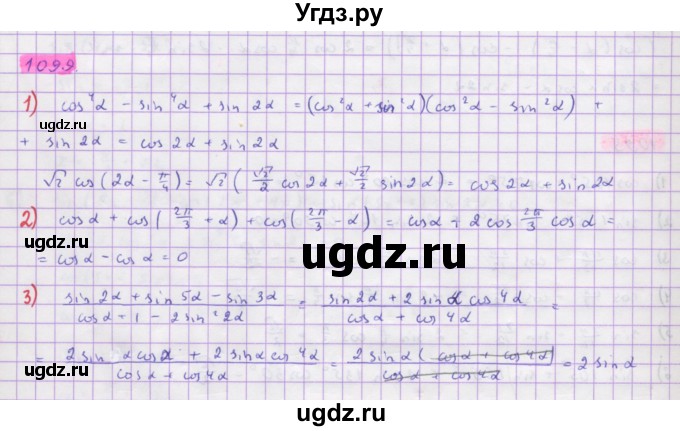 Угдз.ру
1099
1) cos⁴α − sin⁴α + sin 2α = (cos²α + sin²α)(cos²α − sin²α) +
+ sin 2α = cos 2α + sin 2α
√2 cos(2α − π/4) = √2 (√2/2 cos 2α + √2/2 sin 2α) = cos 2α + sin 2α
2) cos α + cos(2π/3 + α) + cos(2π/3 − α) = cos α + 2 cos 2π/3 cos α =
= cos α − cos α = 0
3) (sin 2α + sin 5α − sin 3α)/(cos α + 1 − 2 sin² 2α) = (sin 2α + 2 sin α cos 4α)/(cos α + cos 4α) =
= (2 sin α cos α + 2 sin α cos 4α)/(cos α + cos 4α) = (2 sin α (cos α + cos 4α))/(cos α + cos 4α) = 2 sin α
ugdz.ru
ugdz.ru
ugdz.ru
ugdz.ru
ugdz.ru
ugdz.ru
ugdz.ru
ugdz.ru